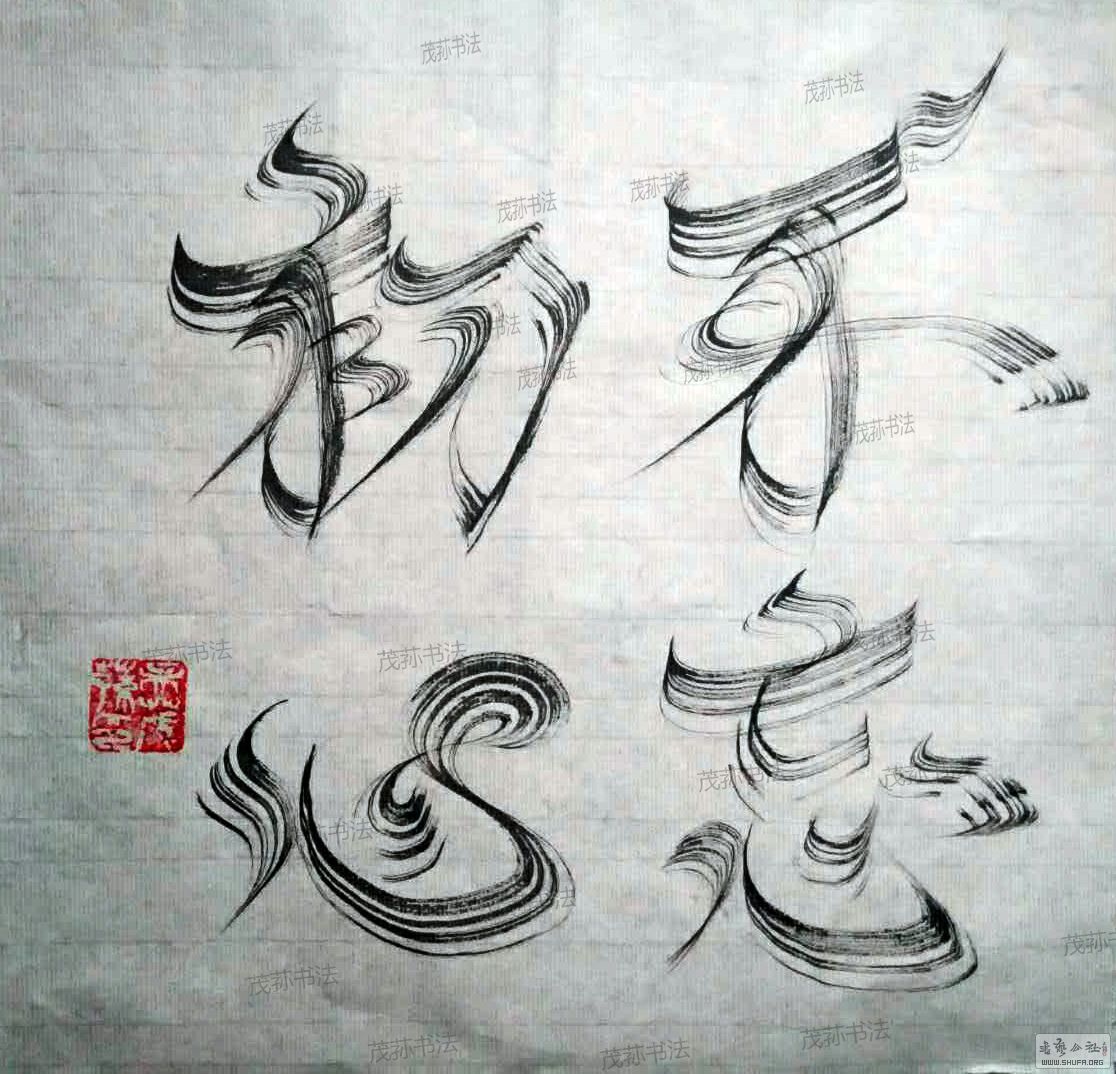 不忘
初心
茂荪书法
书艺公社
WWW.SHUFA.ORG